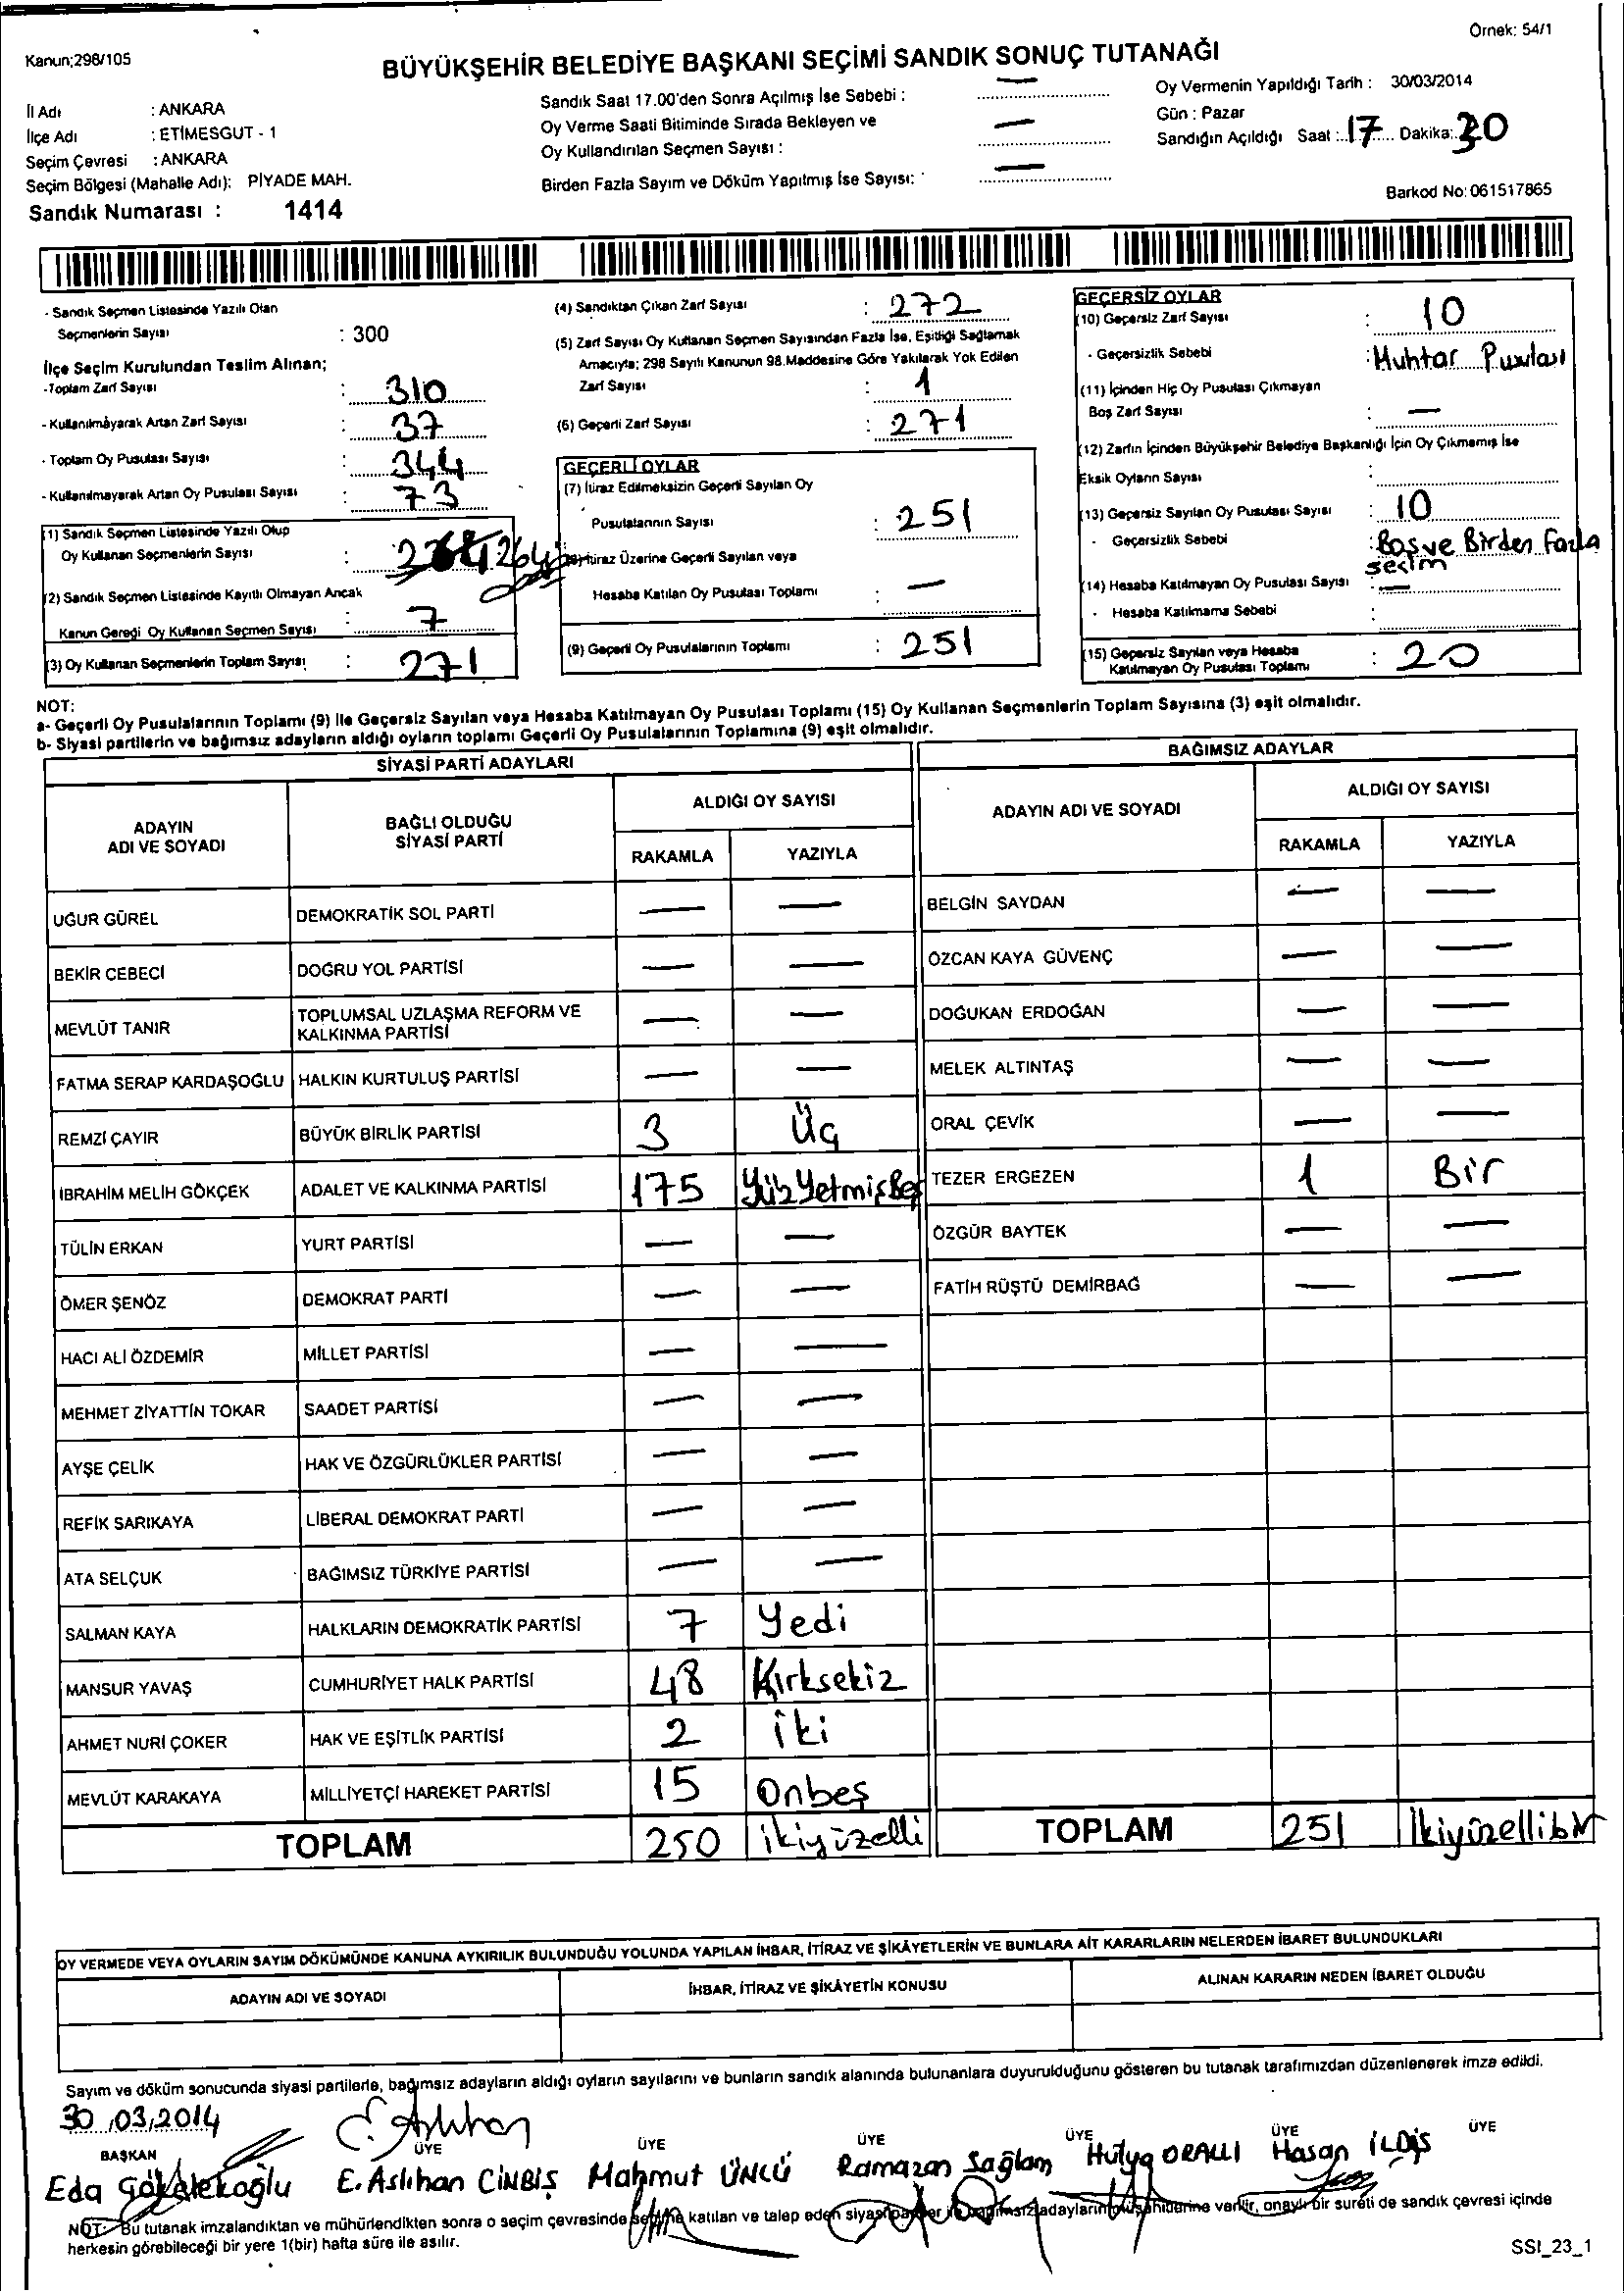 Örnek: 54/1
Kanun;298/105
BÜYÜKŞEHİR BELEDİYE BAŞKANI SEÇİMİ SANDIK SONUÇ TUTANAĞI
İl Adı : ANKARA
İlçe Adı : ETİMESGUT - 1
Seçim Çevresi : ANKARA
Seçim Bölgesi (Mahalle Adı): PİYADE MAH.
Sandık Numarası : 1414
Sandık Saat 17.00'den Sonra Açılmış İse Sebebi : —
Oy Verme Saati Bitiminde Sırada Bekleyen ve
Oy Kullandırılan Seçmen Sayısı : —
Birden Fazla Sayım ve Döküm Yapılmış İse Sayısı: —
Oy Vermenin Yapıldığı Tarih : 30/03/2014
Gün : Pazar
Sandığın Açıldığı Saat :..17.... Dakika:.30
Barkod No: 061517865
- Sandık Seçmen Listesinde Yazılı Olan
Seçmenlerin Sayısı : 300
İlçe Seçim Kurulundan Teslim Alınan;
-Toplam Zarf Sayısı : 310
- Kullanılmayarak Artan Zarf Sayısı : 37
- Toplam Oy Pusulası Sayısı : 344
- Kullanılmayarak Artan Oy Pusulası Sayısı : 73
(1) Sandık Seçmen Listesinde Yazılı Olup
Oy Kullanan Seçmenlerin Sayısı : 264
(2) Sandık Seçmen Listesinde Kayıtlı Olmayan Ancak
Kanun Gereği Oy Kullanan Seçmen Sayısı : 7
(3) Oy Kullanan Seçmenlerin Toplam Sayısı : 271
(4) Sandıktan Çıkan Zarf Sayısı : 272
(5) Zarf Sayısı Oy Kullanan Seçmen Sayısından Fazla İse, Eşitliği Sağlamak
Amacıyla; 298 Sayılı Kanunun 98.Maddesine Göre Yakılarak Yok Edilen
Zarf Sayısı : 1
(6) Geçerli Zarf Sayısı : 271
GEÇERLİ OYLAR
(7) İtiraz Edilmeksizin Geçerli Sayılan Oy
Pusulalarının Sayısı : 251
(8) İtiraz Üzerine Geçerli Sayılan veya
Hesaba Katılan Oy Pusulası Toplamı : —
(9) Geçerli Oy Pusulalarının Toplamı : 251
GEÇERSİZ OYLAR
(10) Geçersiz Zarf Sayısı : 10
- Geçersizlik Sebebi : Muhtar Pusulası
(11) İçinden Hiç Oy Pusulası Çıkmayan
Boş Zarf Sayısı : —
(12) Zarfın İçinden Büyükşehir Belediye Başkanlığı İçin Oy Çıkmamış İse
Eksik Oyların Sayısı :
(13) Geçersiz Sayılan Oy Pusulası Sayısı : 10
- Geçersizlik Sebebi : Boş ve Birden Fazla
seçim
(14) Hesaba Katılmayan Oy Pusulası Sayısı : —
- Hesaba Katılmama Sebebi :
(15) Geçersiz Sayılan veya Hesaba
Katılmayan Oy Pusulası Toplamı : 20
NOT:
a- Geçerli Oy Pusulalarının Toplamı (9) ile Geçersiz Sayılan veya Hesaba Katılmayan Oy Pusulası Toplamı (15) Oy Kullanan Seçmenlerin Toplam Sayısına (3) eşit olmalıdır.
b- Siyasi partilerin ve bağımsız adayların aldığı oyların toplamı Geçerli Oy Pusulalarının Toplamına (9) eşit olmalıdır.
SİYASİ PARTİ ADAYLARI
ADAYIN
ADI VE SOYADI
BAĞLI OLDUĞU
SİYASİ PARTİ
ALDIĞI OY SAYISI
RAKAMLA YAZIYLA
UĞUR GÜREL DEMOKRATİK SOL PARTİ — —
BEKİR CEBECİ DOĞRU YOL PARTİSİ — —
MEVLÜT TANIR TOPLUMSAL UZLAŞMA REFORM VE
KALKINMA PARTİSİ — —
FATMA SERAP KARDAŞOĞLU HALKIN KURTULUŞ PARTİSİ — —
REMZİ ÇAYIR BÜYÜK BİRLİK PARTİSİ 3 Üç
İBRAHİM MELİH GÖKÇEK ADALET VE KALKINMA PARTİSİ 175 YüzYetmişBeş
TÜLİN ERKAN YURT PARTİSİ — —
ÖMER ŞENÖZ DEMOKRAT PARTİ — —
HACI ALİ ÖZDEMİR MİLLET PARTİSİ — —
MEHMET ZİYATTİN TOKAR SAADET PARTİSİ — —
AYŞE ÇELİK HAK VE ÖZGÜRLÜKLER PARTİSİ — —
REFİK SARIKAYA LİBERAL DEMOKRAT PARTİ — —
ATA SELÇUK BAĞIMSIZ TÜRKİYE PARTİSİ — —
SALMAN KAYA HALKLARIN DEMOKRATİK PARTİSİ 7 Yedi
MANSUR YAVAŞ CUMHURİYET HALK PARTİSİ 48 Kırksekiz
AHMET NURİ ÇOKER HAK VE EŞİTLİK PARTİSİ 2 İki
MEVLÜT KARAKAYA MİLLİYETÇİ HAREKET PARTİSİ 15 Onbeş
TOPLAM 250 ikiyüzelli
BAĞIMSIZ ADAYLAR
ADAYIN ADI VE SOYADI
ALDIĞI OY SAYISI
RAKAMLA YAZIYLA
BELGİN SAYDAN — —
ÖZCAN KAYA GÜVENÇ — —
DOĞUKAN ERDOĞAN — —
MELEK ALTINTAŞ — —
ORAL ÇEVİK — —
TEZER ERGEZEN 1 Bir
ÖZGÜR BAYTEK — —
FATİH RÜŞTÜ DEMİRBAĞ — —
TOPLAM 251 İkiyüzellibir
OY VERMEDE VEYA OYLARIN SAYIM DÖKÜMÜNDE KANUNA AYKIRILIK BULUNDUĞU YOLUNDA YAPILAN İHBAR, İTİRAZ VE ŞİKÂYETLERİN VE BUNLARA AİT KARARLARIN NELERDEN İBARET BULUNDUKLARI
ADAYIN ADI VE SOYADI İHBAR, İTİRAZ VE ŞİKÂYETİN KONUSU ALINAN KARARIN NEDEN İBARET OLDUĞU
Sayım ve döküm sonucunda siyasi partilerle, bağımsız adayların aldığı oyların sayılarını ve bunların sandık alanında bulunanlara duyurulduğunu gösteren bu tutanak tarafımızdan düzenlenerek imza edildi.
30.03.2014
E. Aslıhan
BAŞKAN ÜYE ÜYE ÜYE ÜYE ÜYE ÜYE
Eda Gökelekoğlu E. Aslıhan CİNBİŞ Mahmut ÜNLÜ Ramazan Sağlam Hülya ORALLI Hasan İLDİŞ
NOT- Bu tutanak imzalandıktan ve mühürlendikten sonra o seçim çevresinde seçime katılan ve talep eden siyasi partiler ile bağımsız adayların müşahitlerine verilir, onaylı bir sureti de sandık çevresi içinde
herkesin görebileceği bir yere 1(bir) hafta süre ile asılır.
SSI_23_1